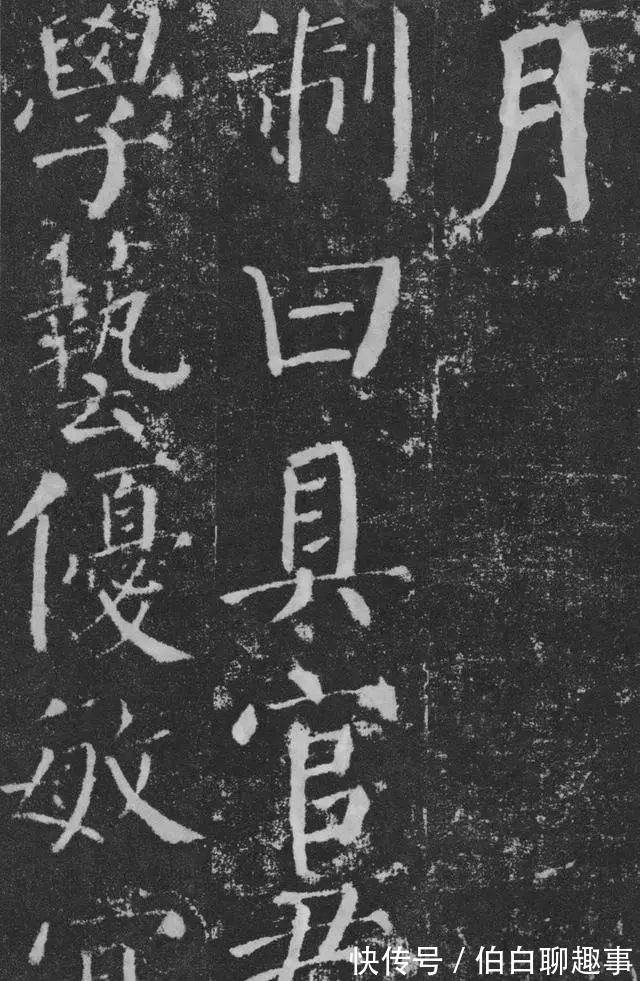 月
制曰具官吾
學藝優敏宜
快传号/伯白聊趣事